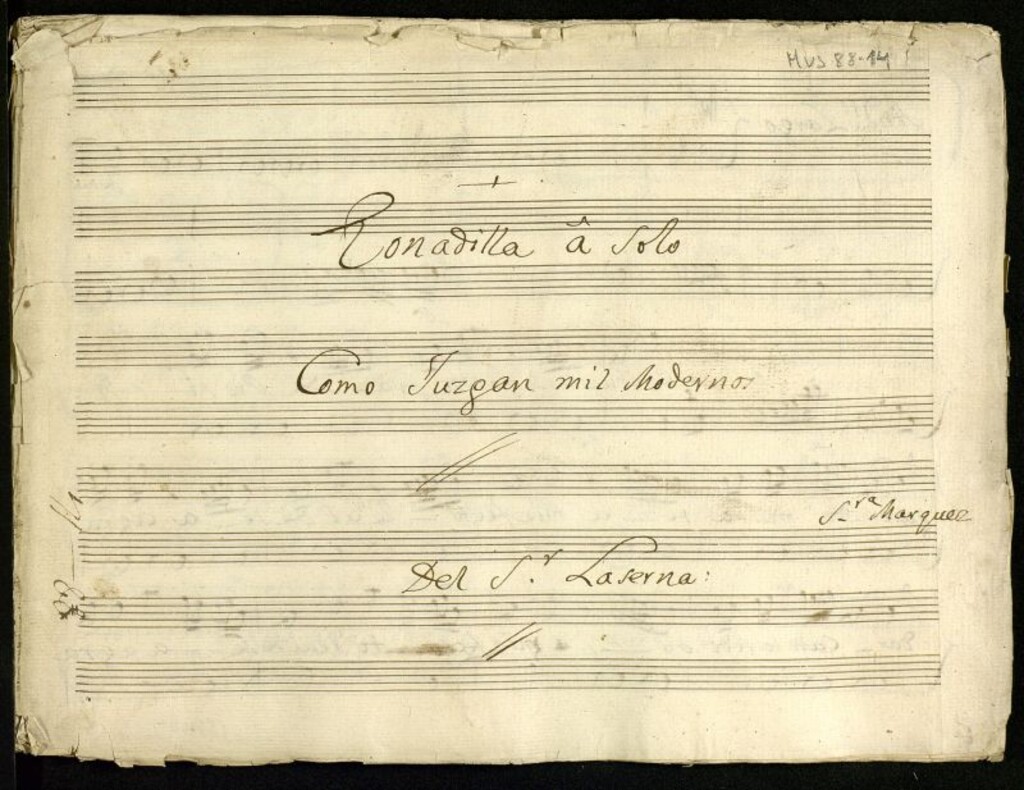 MUS 88-14
Tonadilla â Solo
Como Juzgan mil Modernos
S.ra Marquez
Del S.r Laserna: